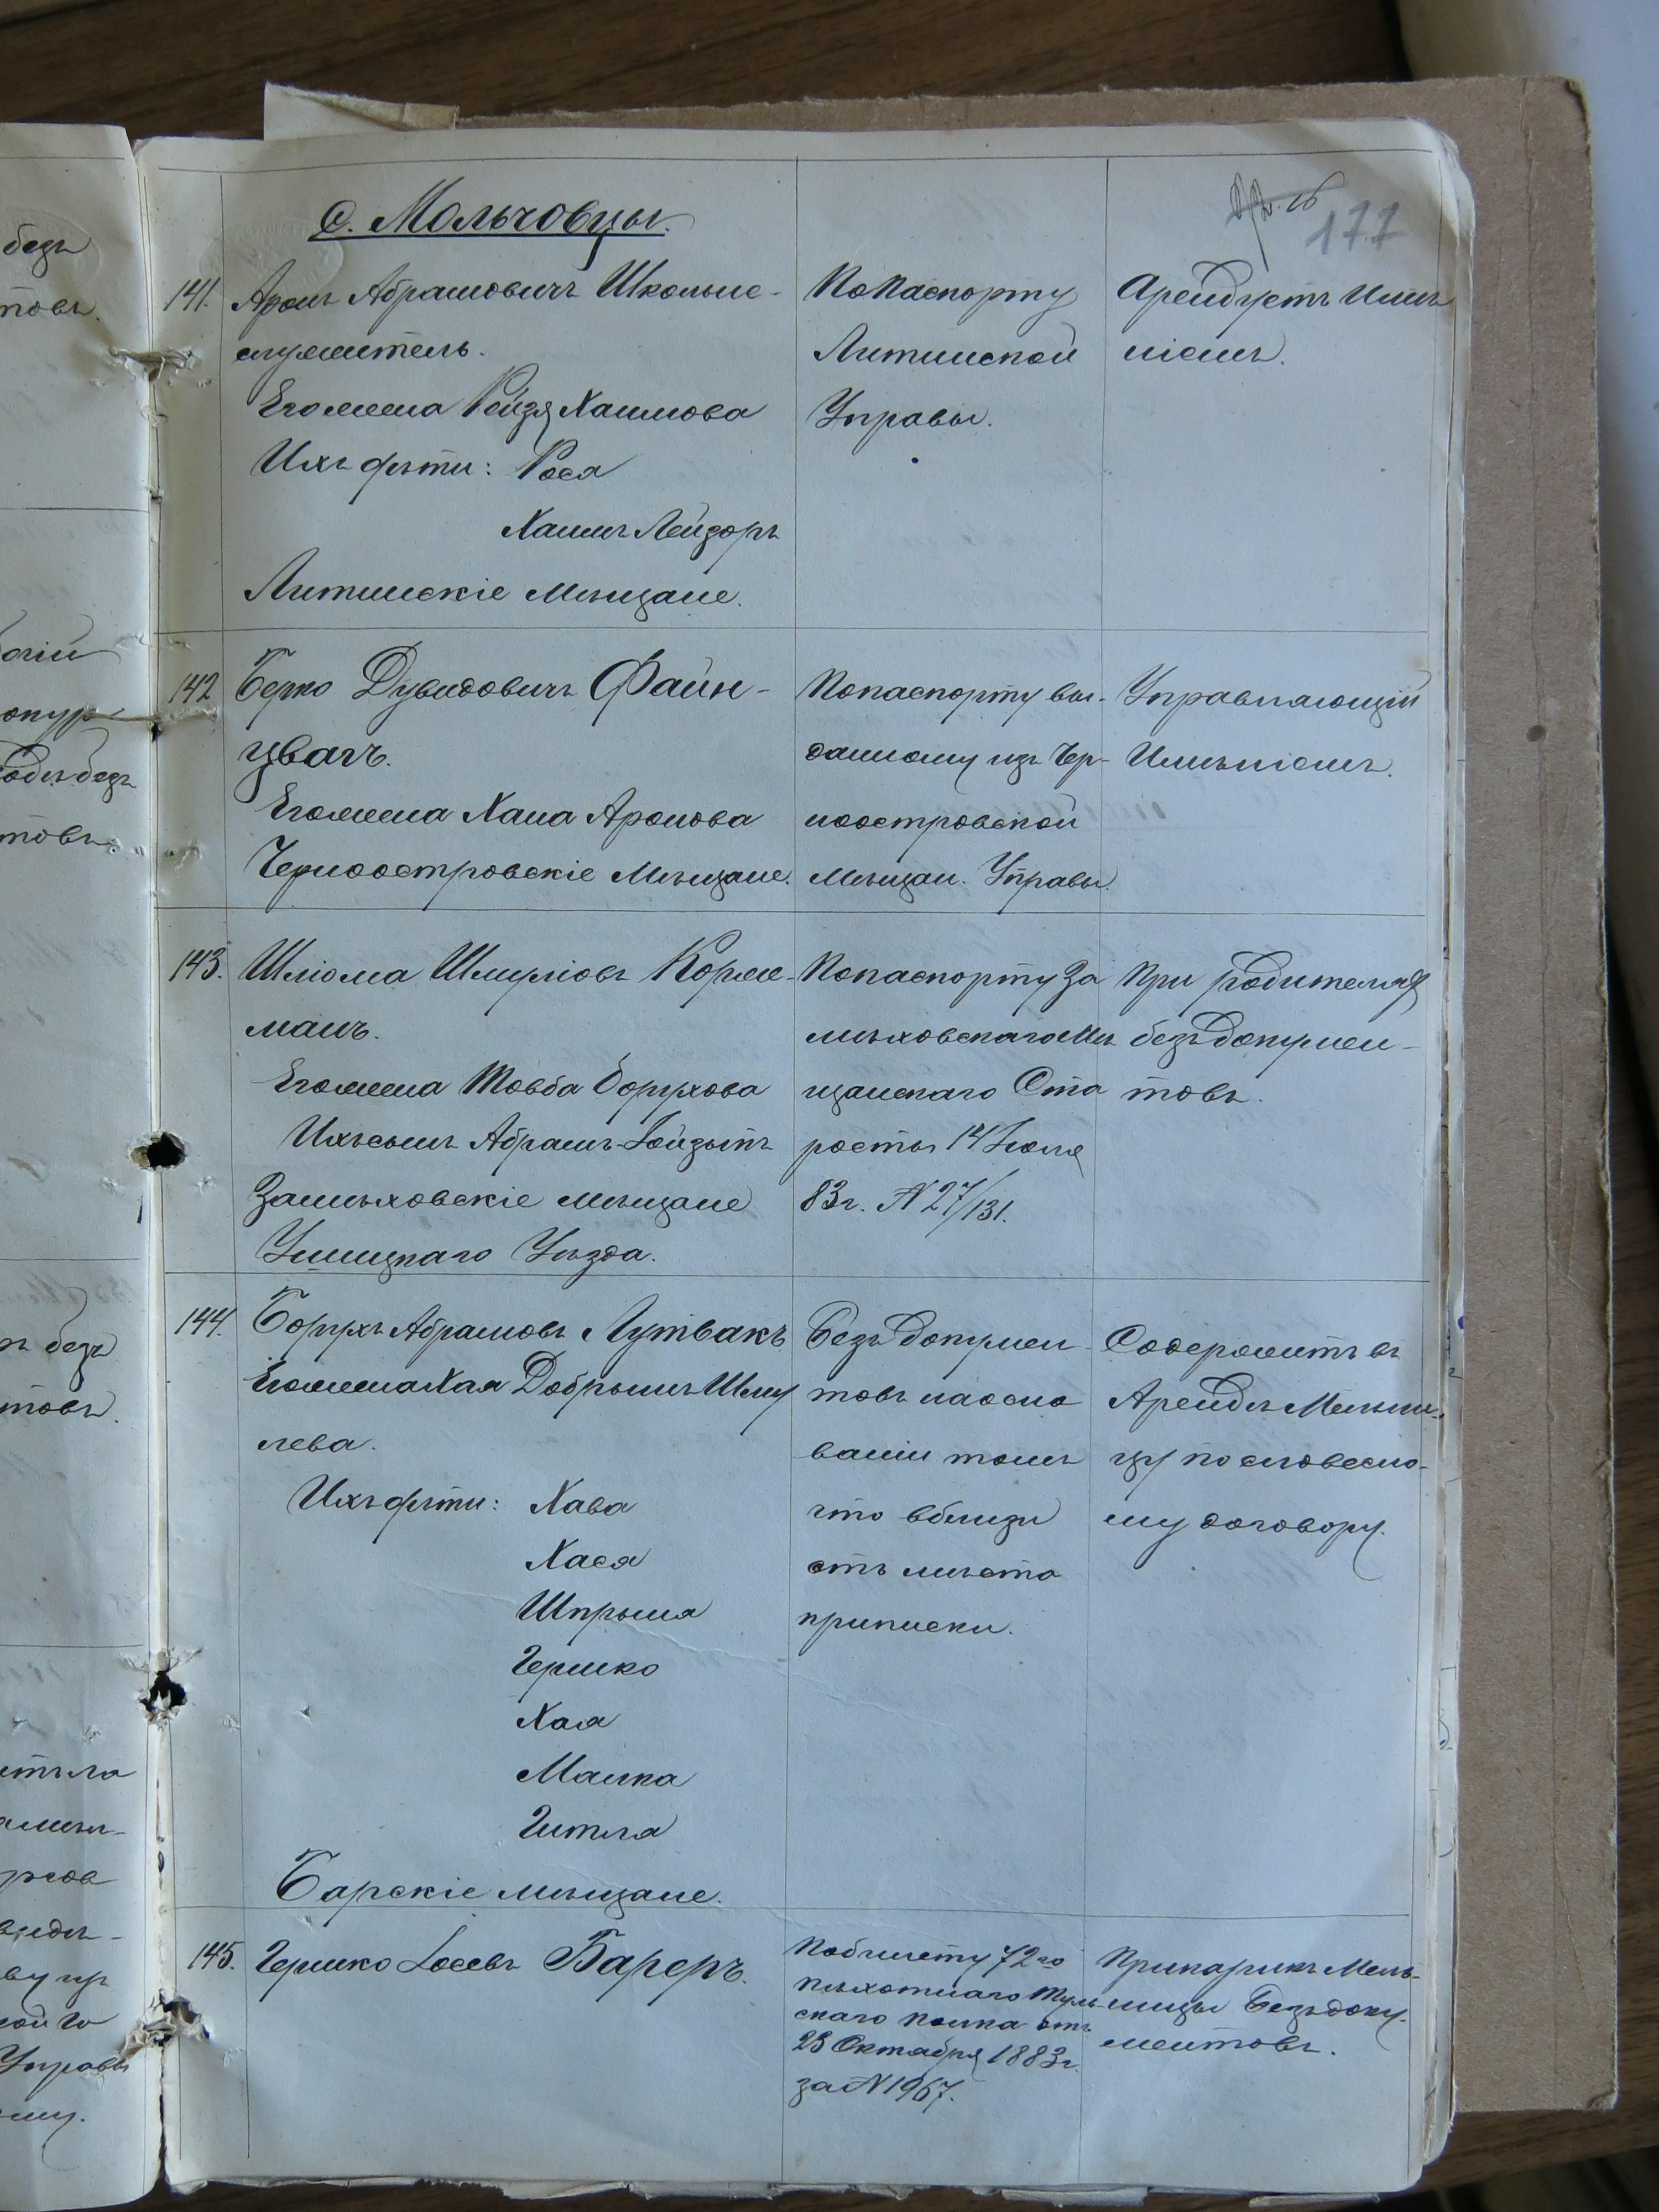 с. Мольчовцы.
177
141. Аронъ Абрамовичъ Школьнс-
служитель.
Его жена Рейзя Хаимова
Ихъ дѣти: Рося
Хаимъ Лейзоръ
Литинскіе Мѣщане.
По Паспорту
Литинской
Управы.
Арендуетъ Имѣ
ніемъ.
142 Берко Дувидовичъ Файн-
цвагъ.
Его жена Хана Аронова
Черноостровскіе Мѣщане.
По паспорту вы-
данному изъ Чер-
ноостровской
Мѣщан. Управы.
Управляющій
Имѣніемъ.
143. Шліома Шмуліовъ Корже-
манъ.
Его жена Товба Борухова
Ихъ сынъ Абрамъ-Іойзыпъ
Замѣховскіе мѣщане
Ушицкаго Уѣзда.
По паспорту За
мѣховскаго Мѣ
щанскаго Ста
росты 14 Іюля
83г. N 27/131.
При родителяхъ
безъ докумен-
товъ.
144. Борухъ Абрамовъ Лутвакъ
Его жена Хая Добрышъ Шму
лева.
Ихъ дѣти: Хава
Хася
Шпрыня
Гершко
Хая
Малка
Гитля
Барскіе мѣщане.
Безъ докумен-
товъ на осно
ваніи томъ
что вблизи
отъ мѣста
приписки.
Содержитъ въ
Арендѣ Мельни-
цу по словесно-
му договору.
145. Гершко Іосевъ Бареръ.
По билету 72го
пѣхотнаго Туль-
скаго полка отъ
23 Октября 1883г.
за N 1967.
При паринъ Мель-
ницы безъ доку-
ментовъ.